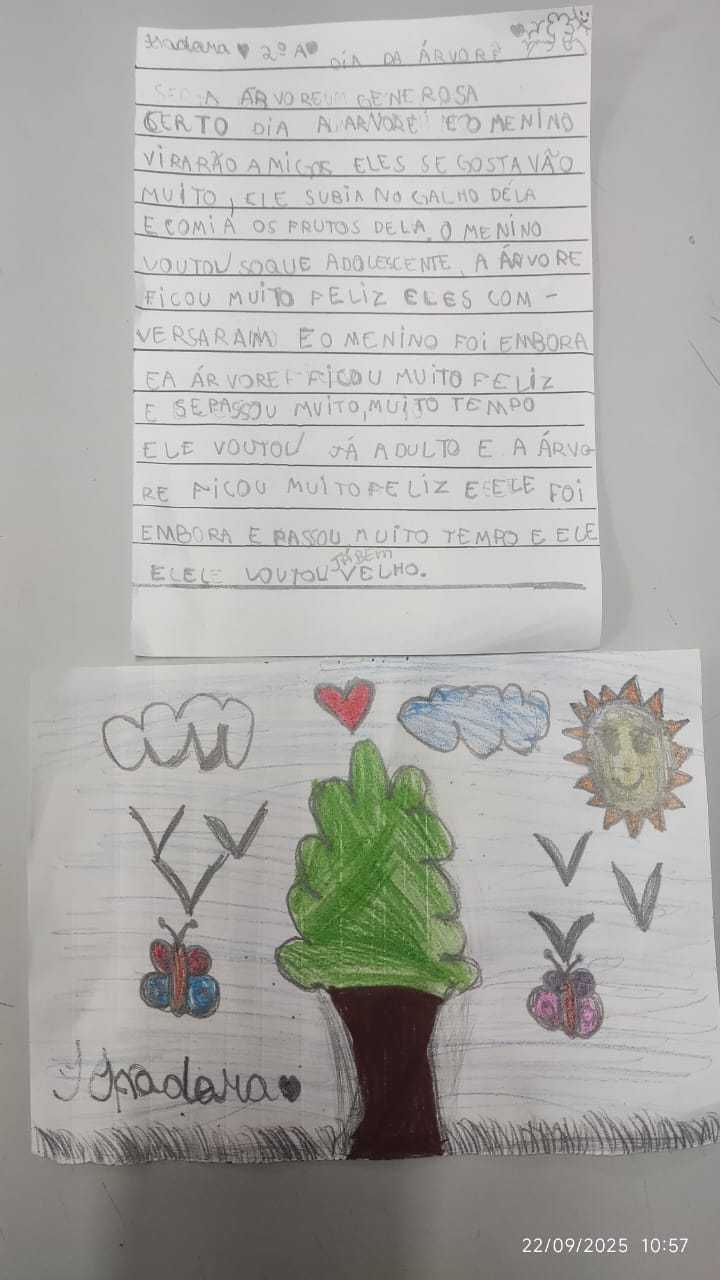 Isadara 2º A DIA DA ÁRVORE
A ÁRVORE GENEROSA
CERTO DIA A ARVORE E O MENINO
VIRARÃO AMIGOS ELES SE GOSTAVÃO
MUITO, ELE SUBIA NO GALHO DÉLA
E COMIA OS FRUTOS DELA, O MENINO
VOUTOU SOQUE ADOLESCENTE, A ÁRVORE
FICOU MUITO FELIZ ELES COM -
VERSARAM E O MENINO FOI EMBORA
EA ÁRVORE FICOU MUITO FELIZ
E SEPASSOU MUITO, MUITO TEMPO
ELE VOUTOU JÁ ADULTO E A ÁRVO
RE FICOU MUITO FELIZ E ELE FOI
EMBORA E PASSOU MUITO TEMPO E ELE
ELELE VOUTOU JÁ BEM VELHO.
Isadara
22/09/2025 10:57